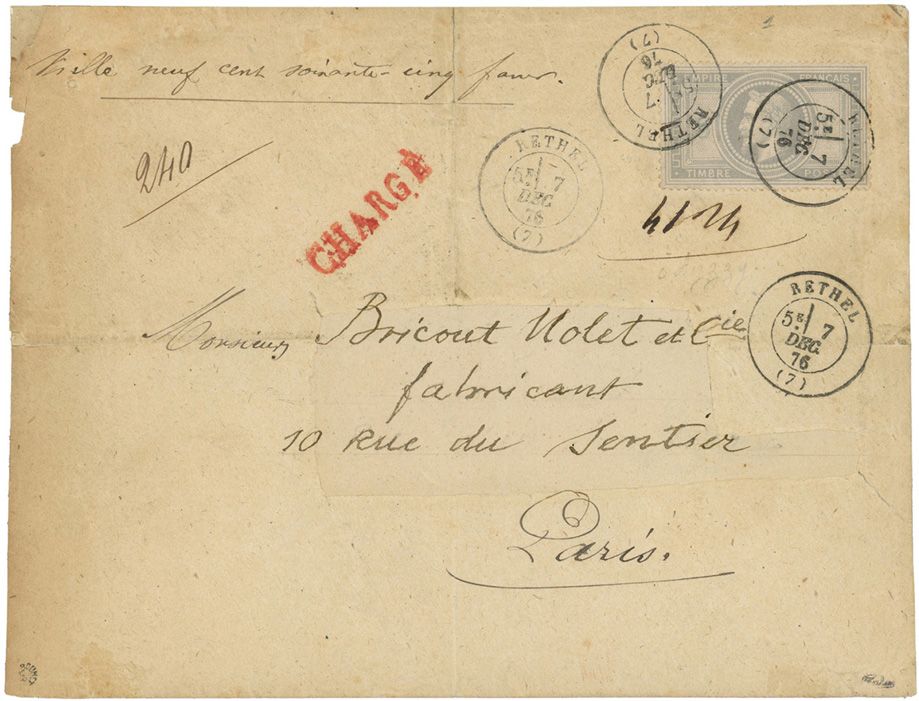 Mille neuf cent soixante-cinq francs.
240
CHARGÉ
RETHEL
5E 7
DEC
76
(7)
RETHEL
5E 7
DEC
76
(7)
EMPIRE FRANÇAIS
TIMBRE POSTE
RETHEL
5E 7
DEC
76
(7)
RETHEL
5E 7
DEC
76
(7)
Monsieur Bricout Molet et Cie
fabricant
10 Rue du Sentier
Paris.